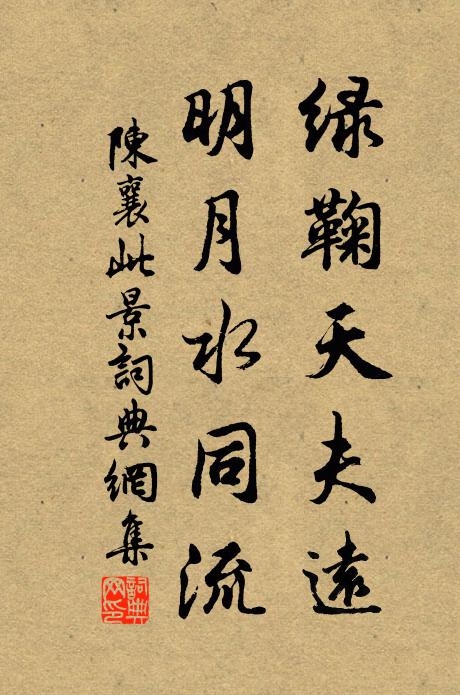 緑鞠天夫遠
明月水同流
陳襄此景詞典網集
詞典网印